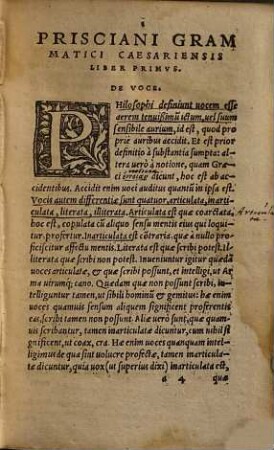 PRISCIANI GRAM
MATICI CAESARIENSIS
LIBER PRIMVS.
DE VOCE.
PHilosophi definiunt uocem esse
aerem tenuißimũ ictum, uel suum
sensibile aurium, id est, quod pro
priè auribus accidit. Et est prior
definitio à substantia sumpta: al-
tera uerò à notione, quam Græ
ci dicunt, hoc est ab ac-
cidentibus. Accidit enim uoci auditus quantũ in ipsa est.
Vocis autem differentiæ sunt quatuor, articulata, inarti-
culata, literata, illiterata. Articulata est quæ coarctata,
hoc est, copulata cũ aliquo sensu mentis eius qui loqui-
tur, profertur. Inarticulata est cõtraria, quæ à nullo pro-
ficiscitur affectu mentis. Literata est quæ scribi potest. Il-
literata quæ scribi non potest. Inueniuntur igitur quædã
uoces articulatæ, & quæ scribi possunt, et intelligi, ut Ar
ma uirumq́; cano. Quædam quæ non possunt scribi, in-
telliguntur tamen, ut sibili hominũ & gemitus: hæ enim
uoces quamuis sensum aliquem significent proferentis
eas, scribi tamen non possunt. Aliæ uerò sunt, quæ quam-
uis scribantur, tamen inarticulatæ dicuntur, cum nihil si-
gnificent, ut coax, cra. Hæ enim uoces quanquam intel-
ligimus de qua sint uolucre profectæ, tamen inarticula-
tæ dicuntur, quia uox (ut superius dixi) inarticulata est,
a 4 quæ